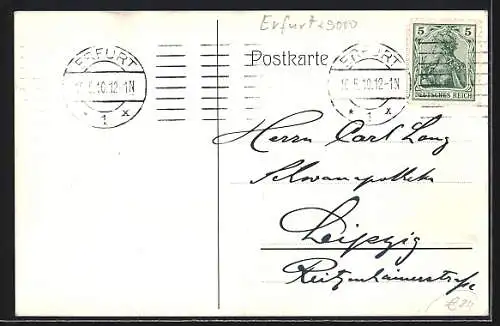 Erfurt 9000
Postkarte
ERFURT
16.5.10.12-1N
* 1 x
ERFURT
16.5.10.12-1N
* 1 x
5 5
DEUTSCHES REICH
Herrn Carl Lang
Schwanapotheke
Leipzig
Reitzenhainerstraße